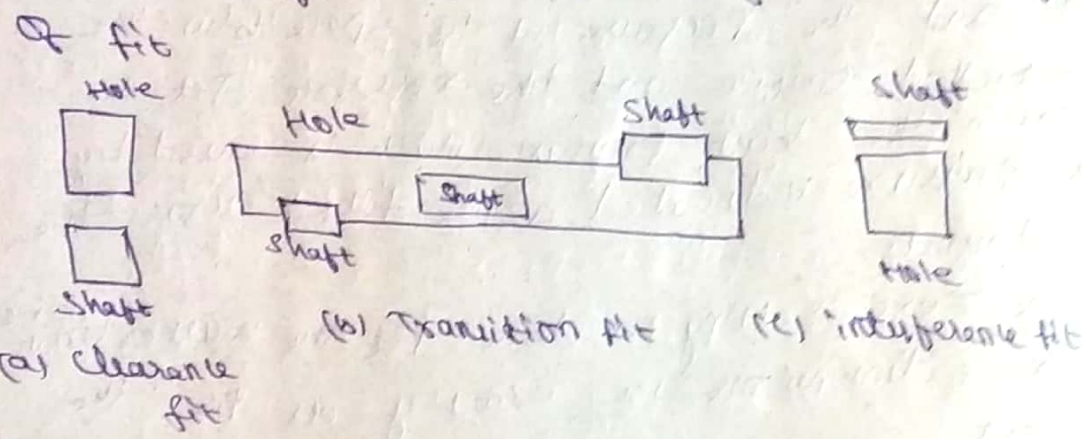 Of fit
Hole
Shaft
(a) Clearance
fit
Hole
Shaft
Shaft
Shaft
(b) Transition fit
Shaft
Hole
(c) interference fit